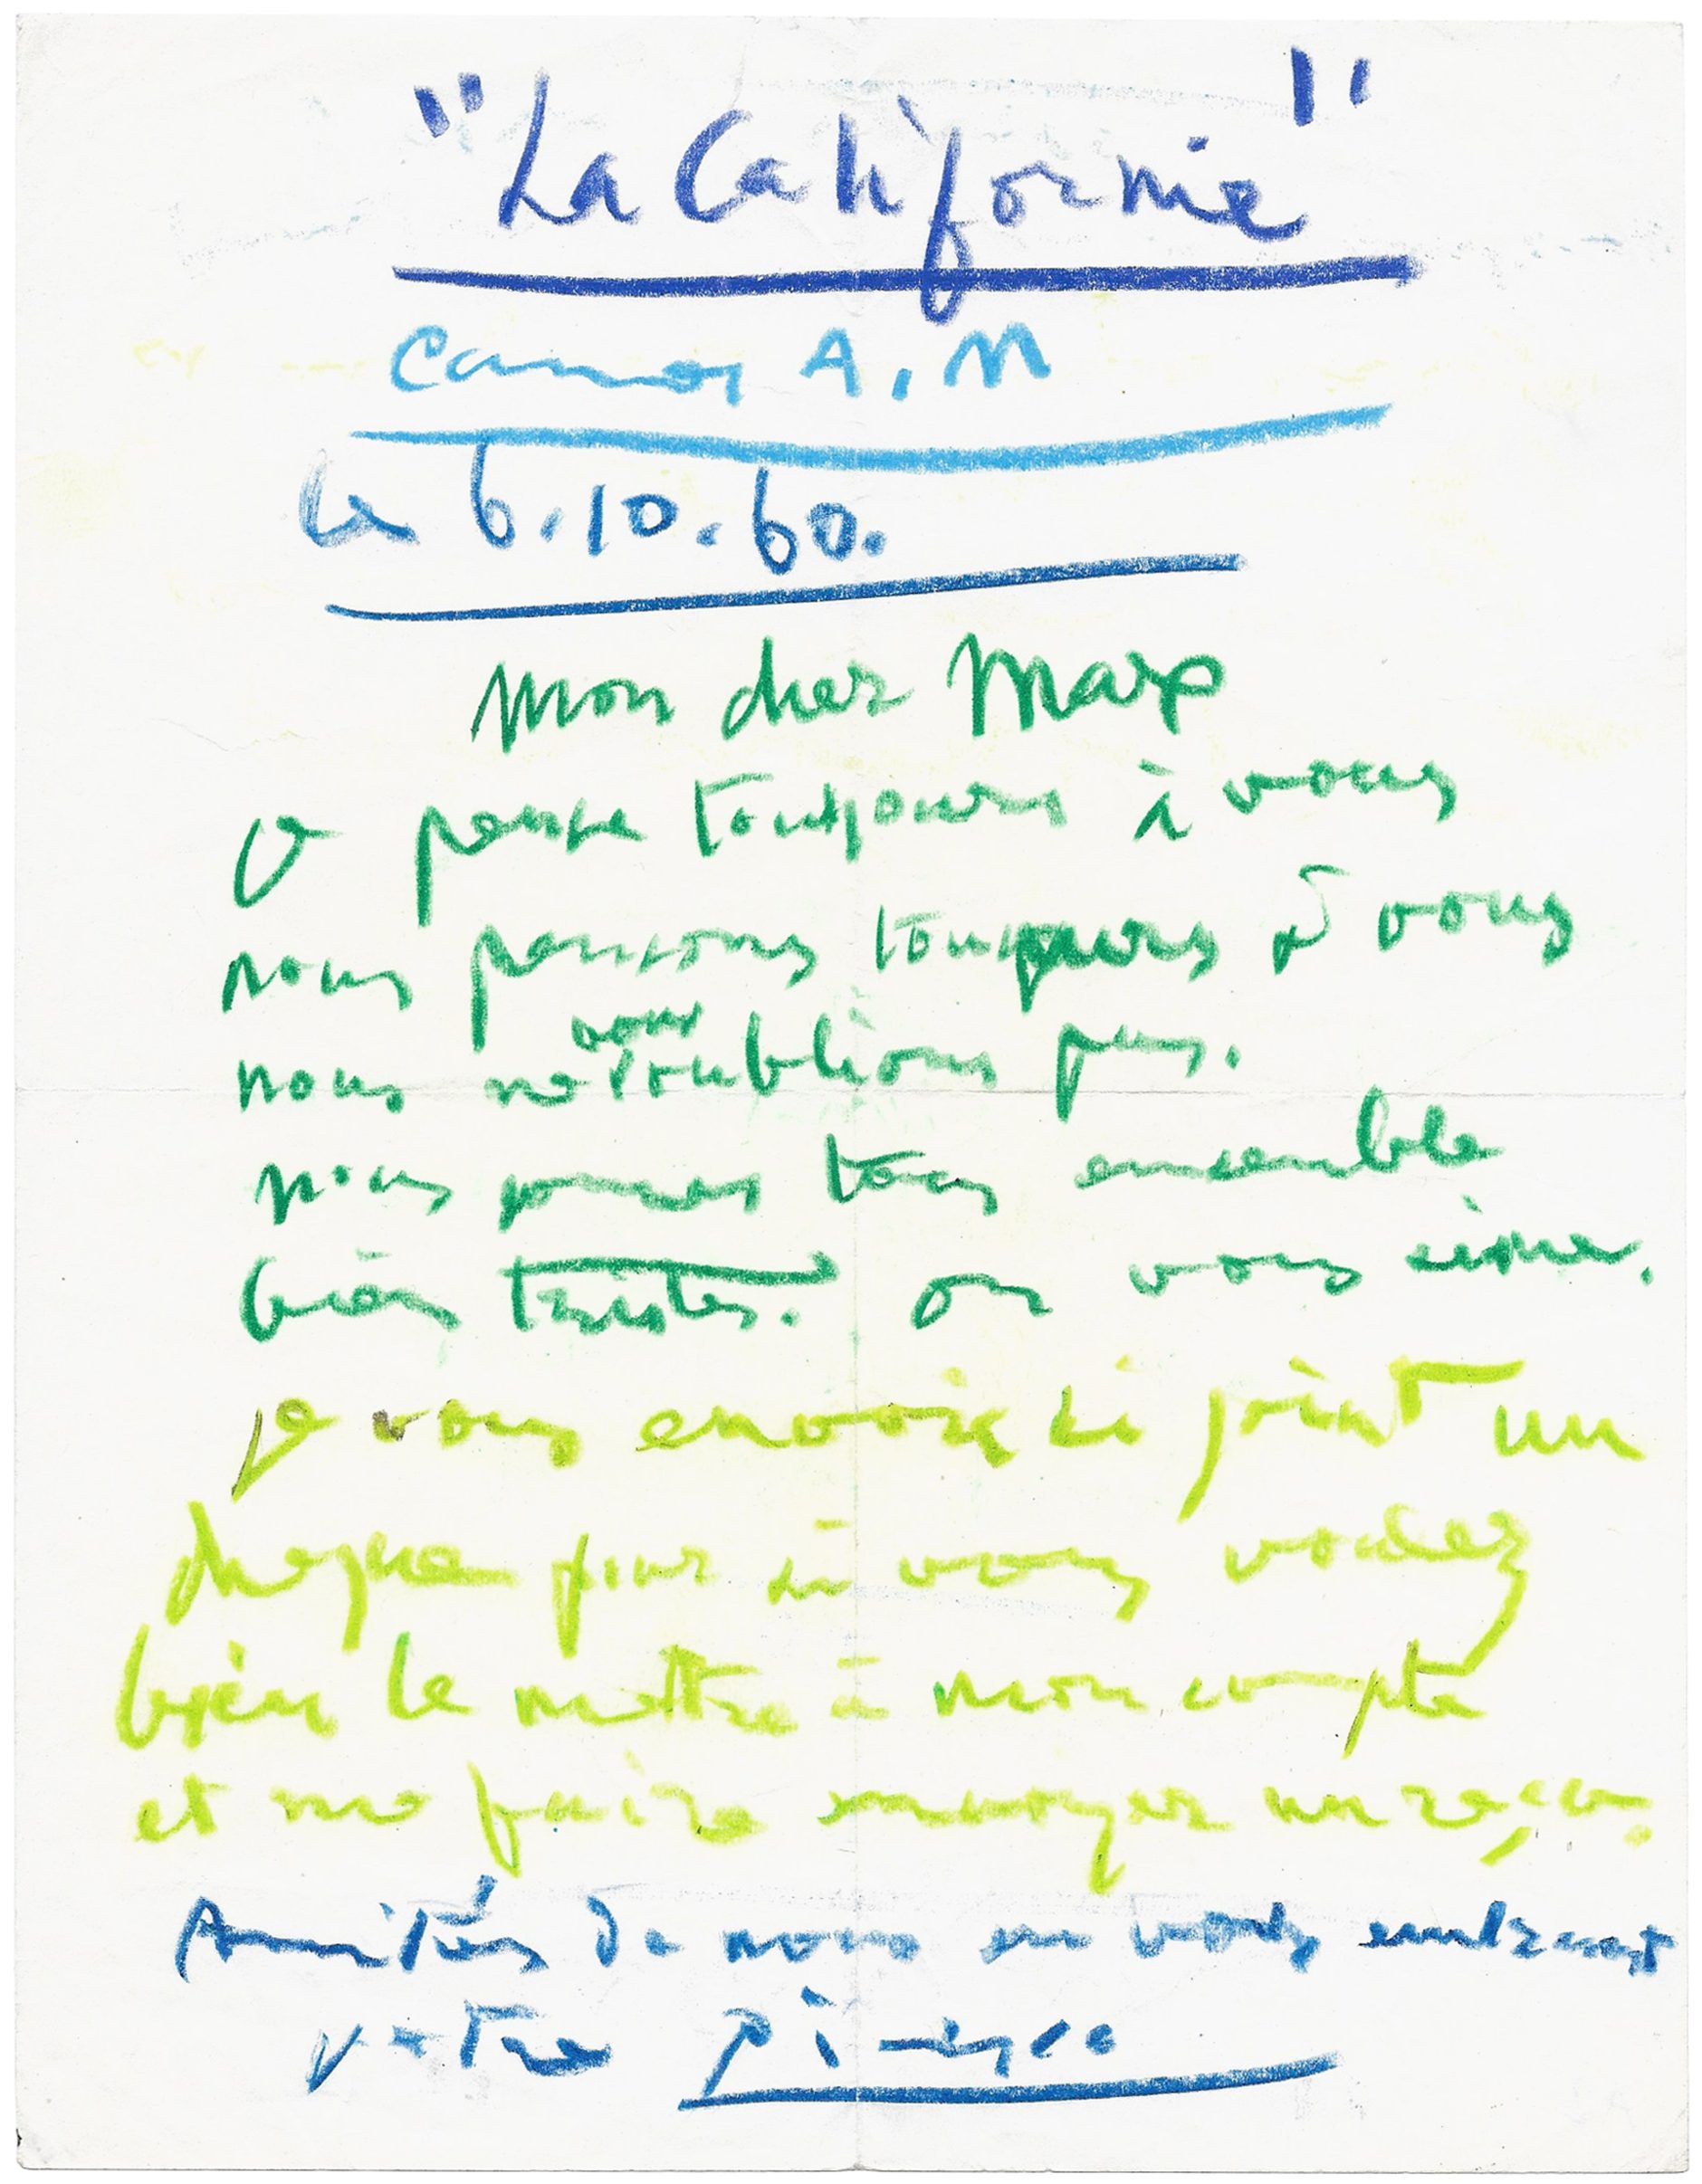 "La Californie"
Cannes A. M
le 6.10.60.
mon cher Max
Je pense toujours à vous
nous pensons toujours à vous
nous ne vous oublions pas.
nous sommes tous ensemble
bien tristes. on vous aime.
je vous envoie ci joint un
cheque pour si vous voulez
bien le mettre à mon compte
et me faire envoyer un reçu.
Amitiés de nous en vous embrassant
votre Picasso